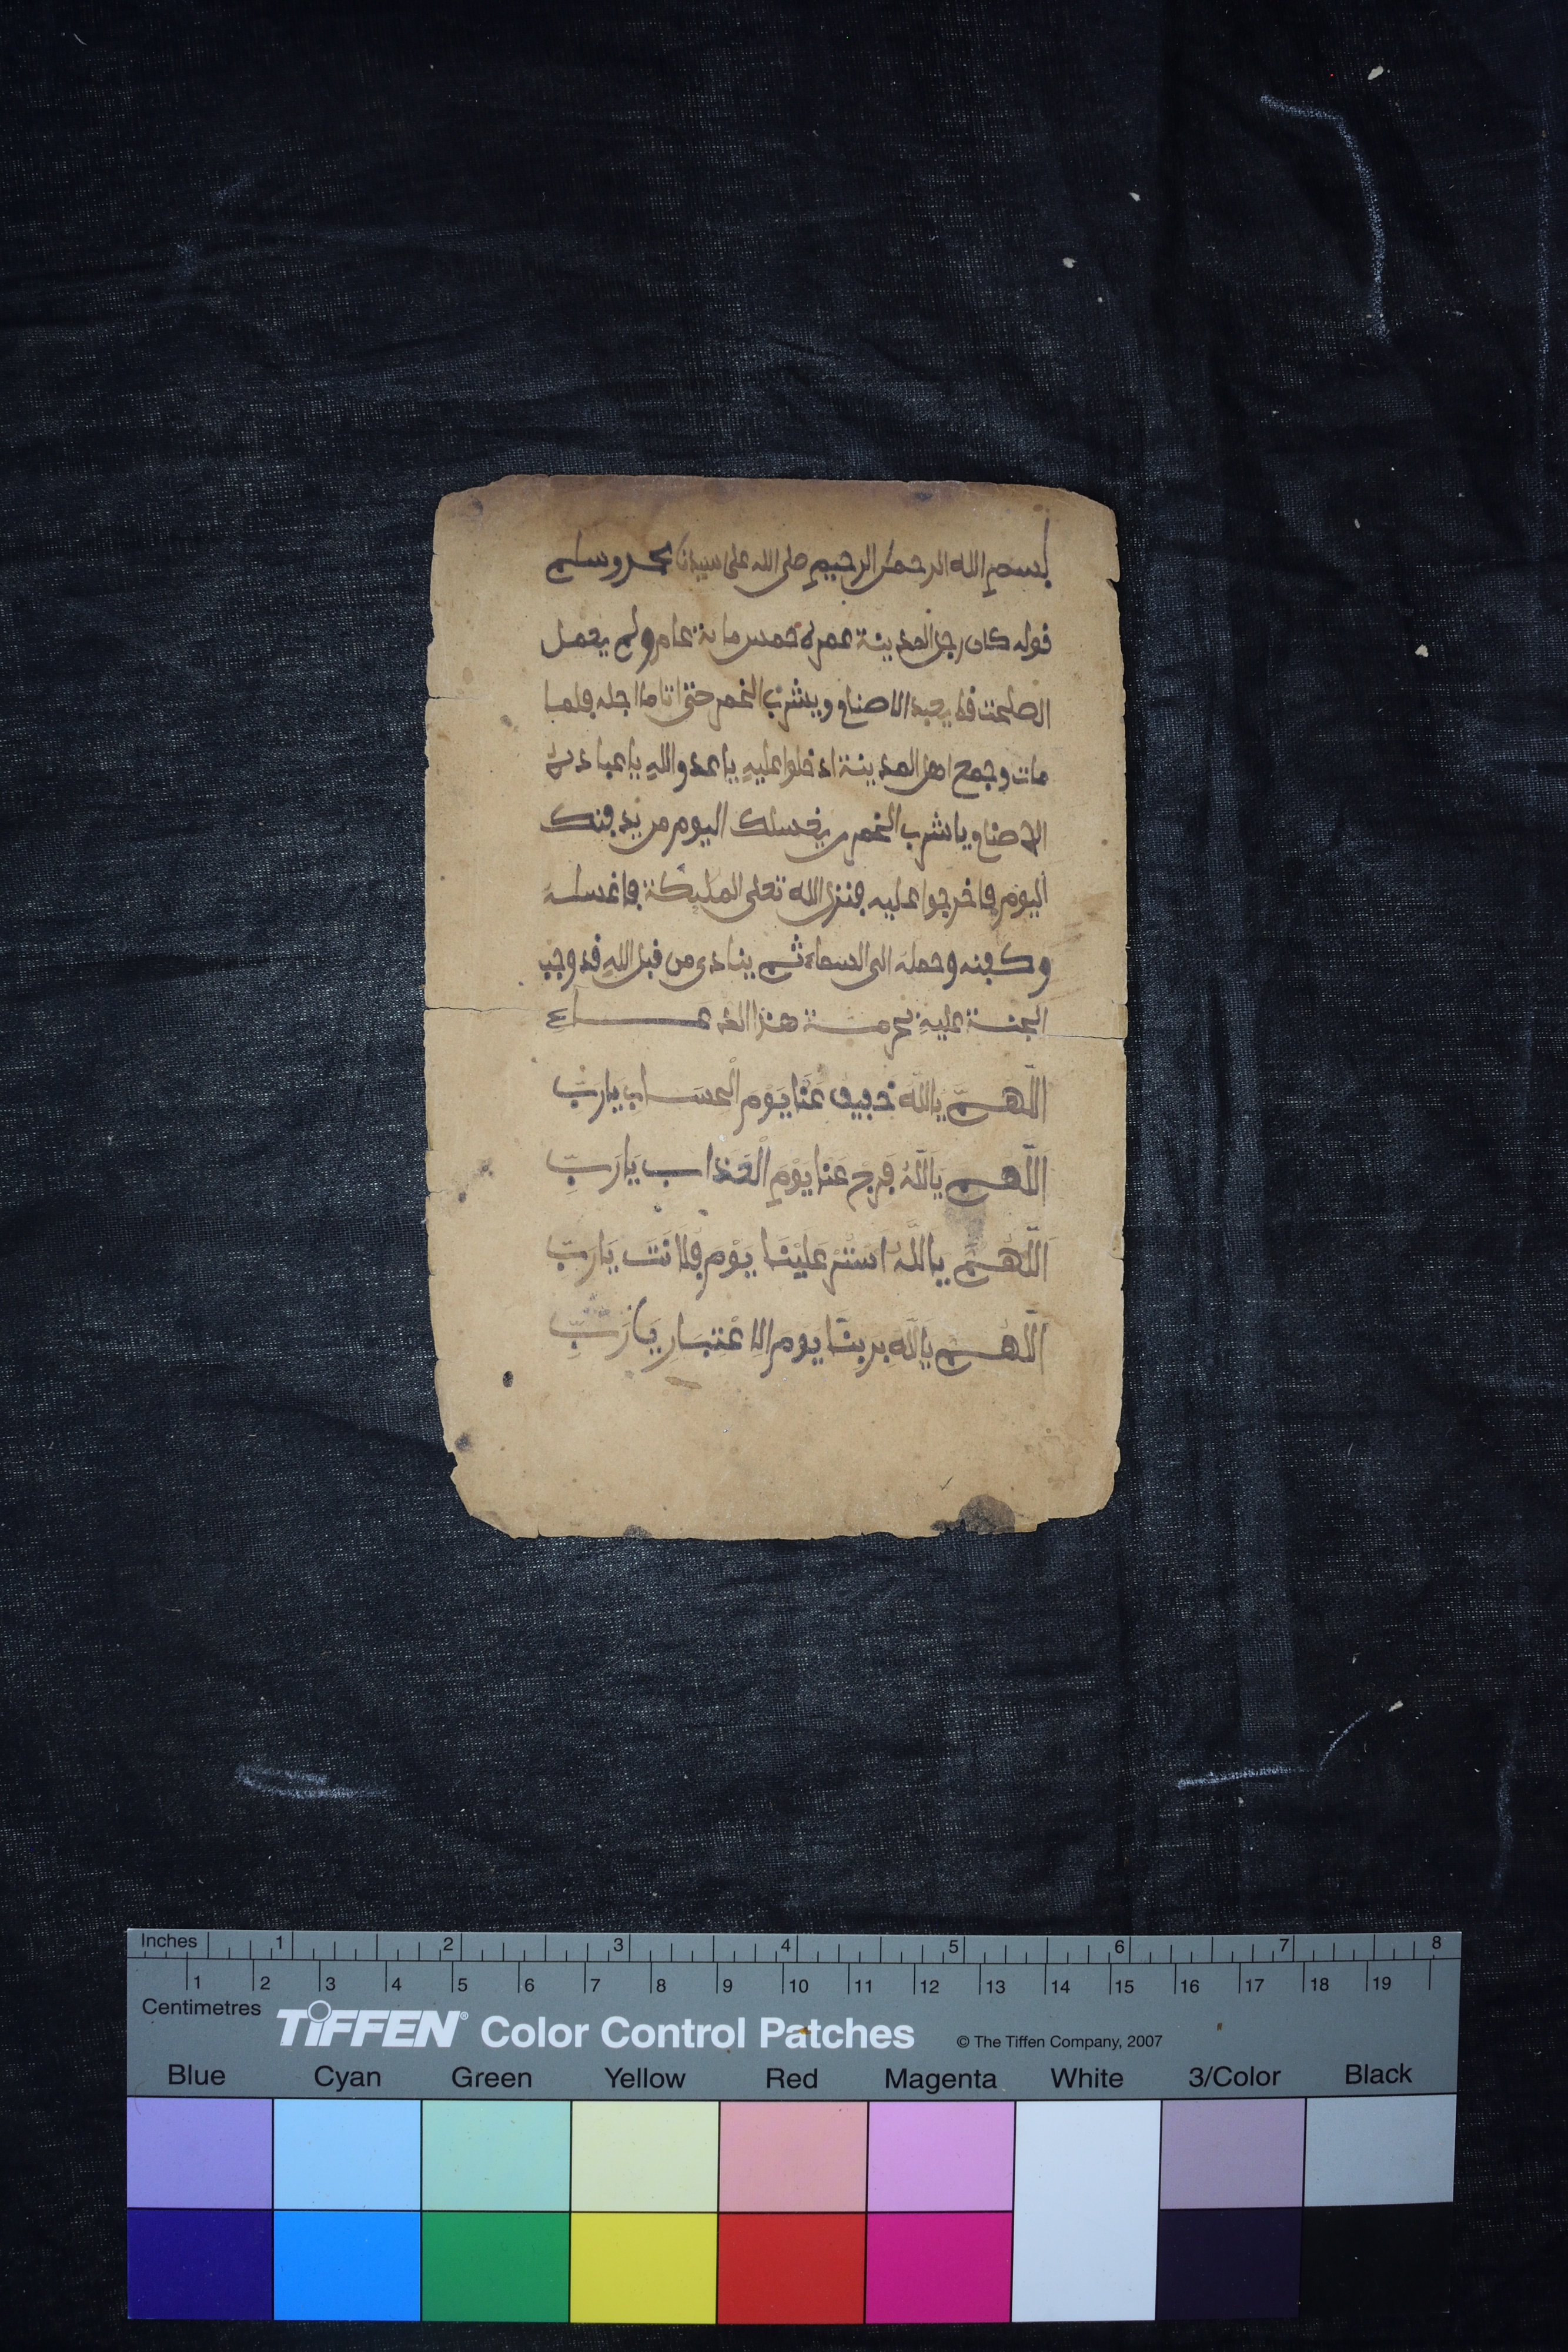 بسم الله الرحمن الرحيم صلى الله على سيدنا محمد وسلم
قوله كان رجل المدينة عمره خمس مائة عام ولم يعمل
الصلحت قط يعبد الاصنام ويشرب الخمر حتى اتاما اجله فلما
مات وجمع اهل المدينة ادخلوا عليه يا عدو الله يا عباد
الاصنام يا شرب الخمر من يغسلك اليوم من يدفنك
اليوم فاخرجوا عليه فنزل الله تعلى المليكة فاغسله
وكفنه وحمله الى السماء ثم ينادى من قبل الله قد وجب
الجنة عليه بحرمة هذا الدعاء
اللَّهم يَاللَّهَ خَفِيف عَنَّا يَوْم الْحسَاب يَارَبِّ
اللَّهم يَاللَّهُ فَرِج عَنَا يَوْمِ الْعَذَاب يَارَبِّ
اللَّهم يَاللَّهُ اسْتُرْ عَلَيْنَا يَوْمَ يَارَبِّ
اللَّهم يَاللَّهِ يوم الاعْتبَارِ يَارَبِّ
Inches 1 2 3 4 5 6 7 8
1 2 3 4 5 6 7 8 9 10 11 12 13 14 15 16 17 18 19
Centimetres
TIFFEN® Color Control Patches © The Tiffen Company, 2007
Blue Cyan Green Yellow Red Magenta White 3/Color Black